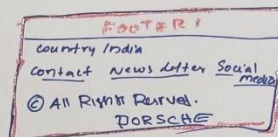 FOOTER:
country India
Contact News Letter Social
media
© All Rights Rerved.
PORSCHE